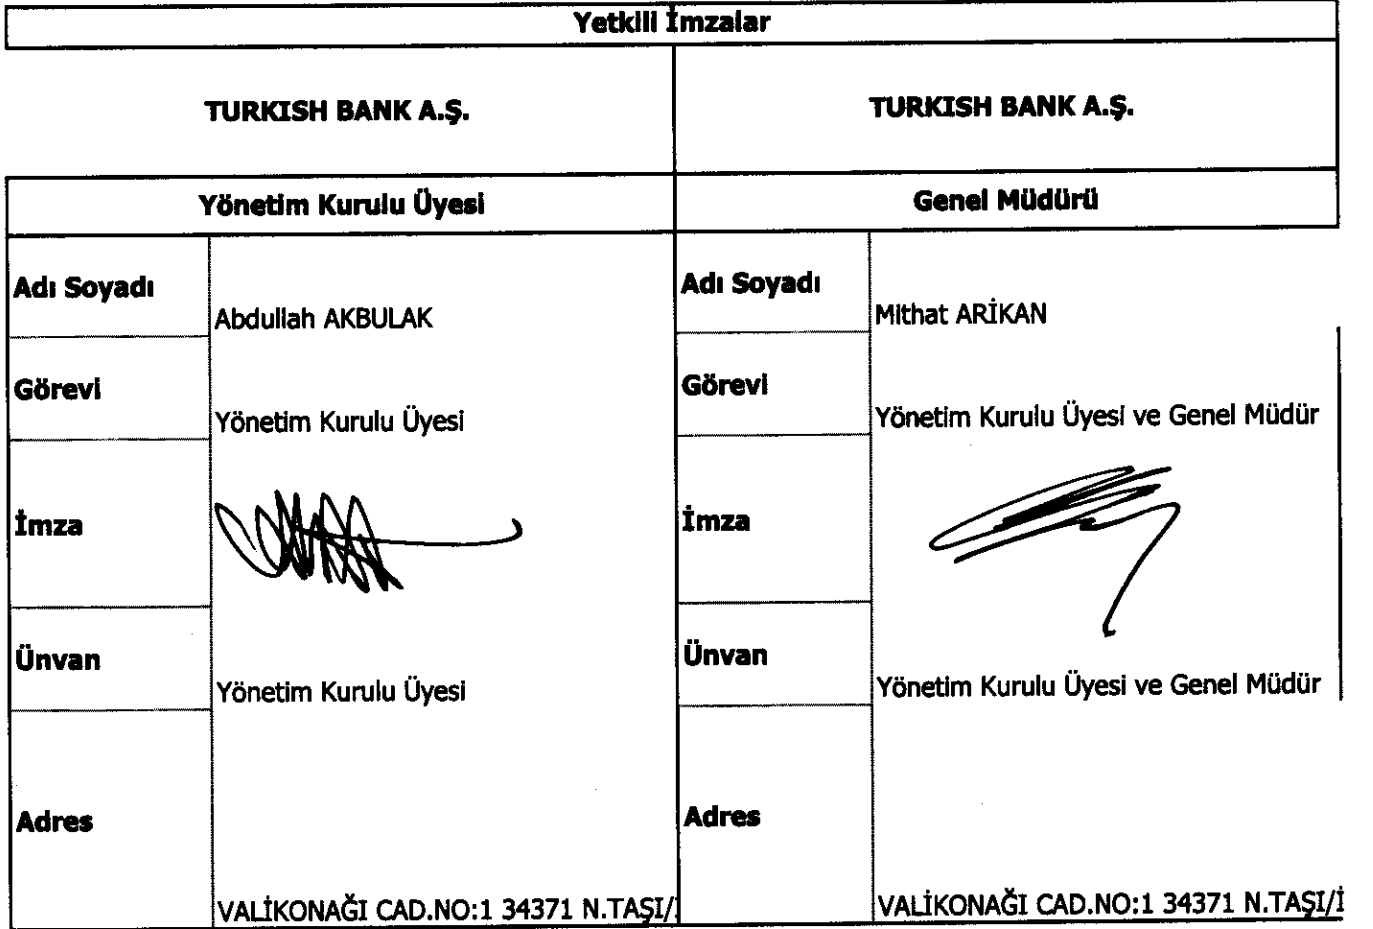 Yetkili İmzalar
TURKISH BANK A.Ş.
TURKISH BANK A.Ş.
Yönetim Kurulu Üyesi
Genel Müdürü
Adı Soyadı
Abdullah AKBULAK
Adı Soyadı
Mithat ARİKAN
Görevi
Yönetim Kurulu Üyesi
Görevi
Yönetim Kurulu Üyesi ve Genel Müdür
İmza
İmza
Ünvan
Yönetim Kurulu Üyesi
Ünvan
Yönetim Kurulu Üyesi ve Genel Müdür
Adres
VALİKONAĞI CAD.NO:1 34371 N.TAŞI/
Adres
VALİKONAĞI CAD.NO:1 34371 N.TAŞI/İ